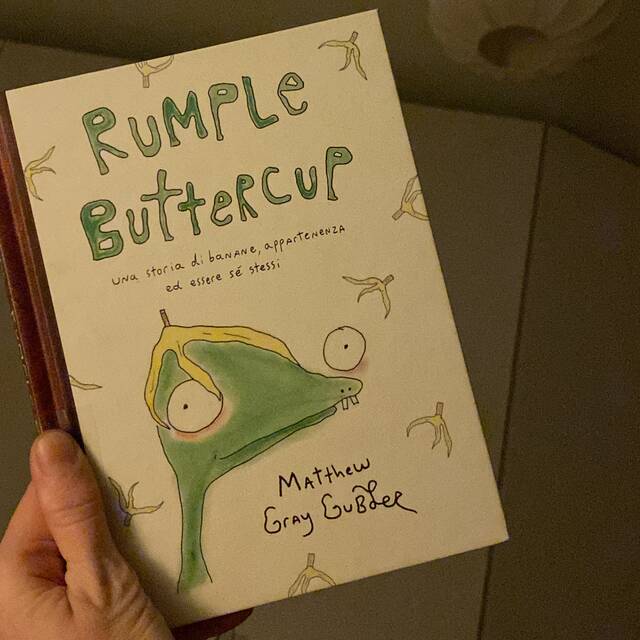 RUMPLE
BUTTERCUP
una storia di banane, appartenenza
ed essere sé stessi
Matthew
Gray Gubler